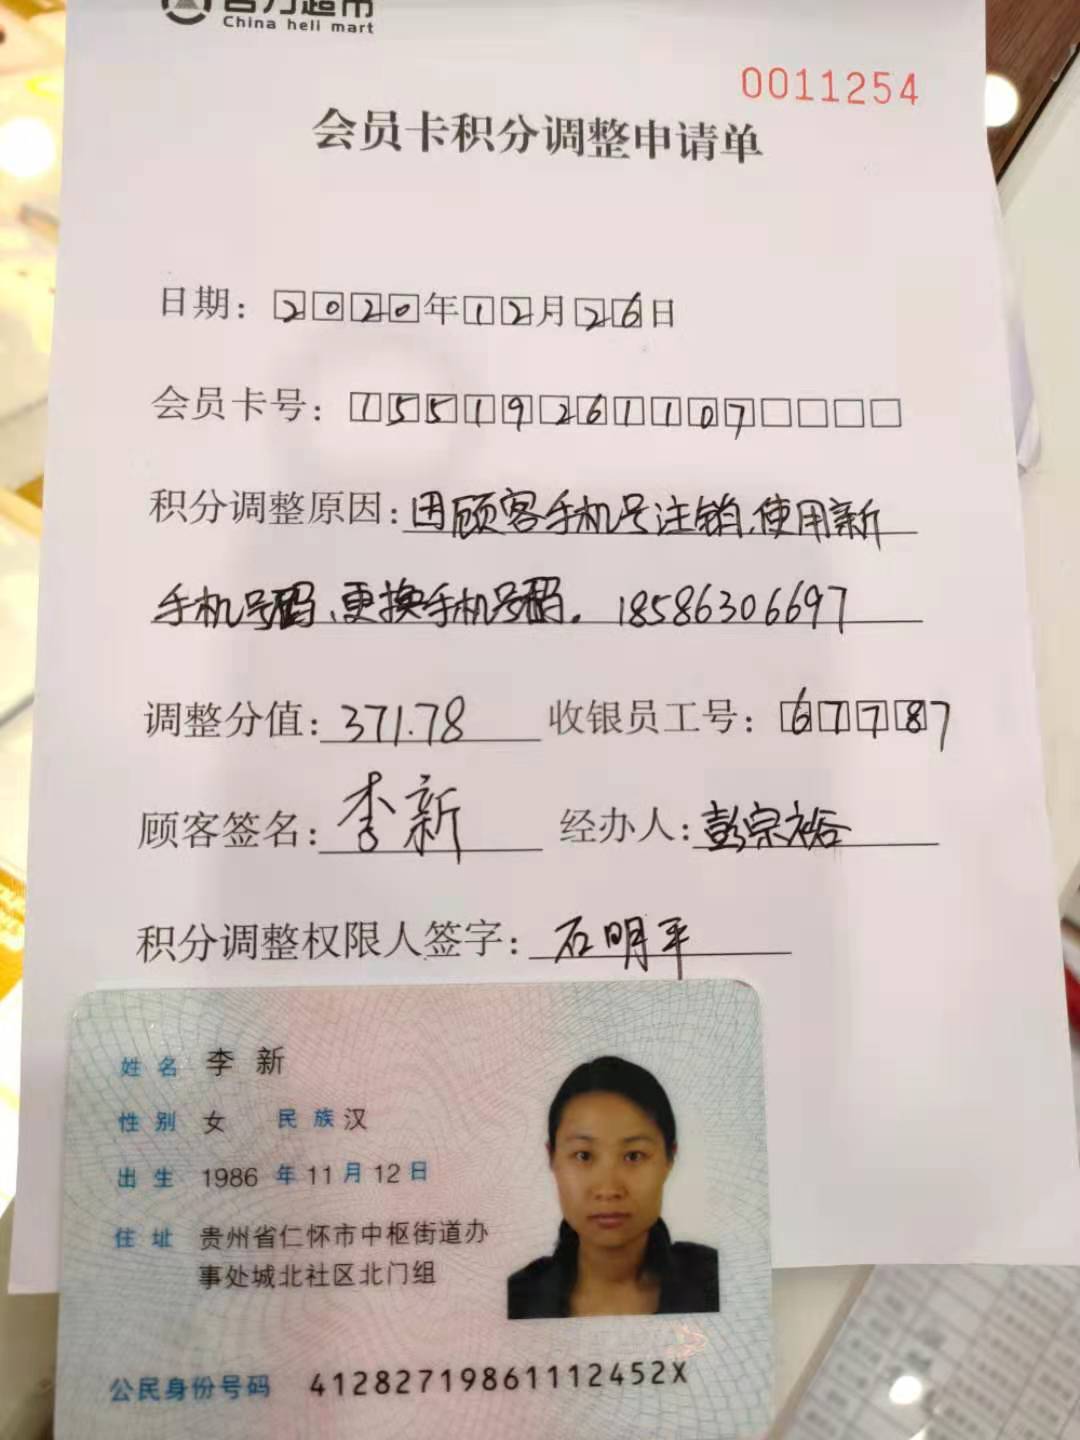 China heli mart
0011254
会员卡积分调整申请单
日期：2020年12月26日
会员卡号：15519261107
积分调整原因：因顾客手机号注销、使用新
手机号码、更换手机号码。18586306697
调整分值：371.78 收银员工号：67787
顾客签名：李新 经办人：彭宗裕
积分调整权限人签字：石明平
姓名 李新
性别 女 民族 汉
出生 1986年11月12日
住址 贵州省仁怀市中枢街道办
事处城北社区北门组
公民身份号码 41282719861112452X